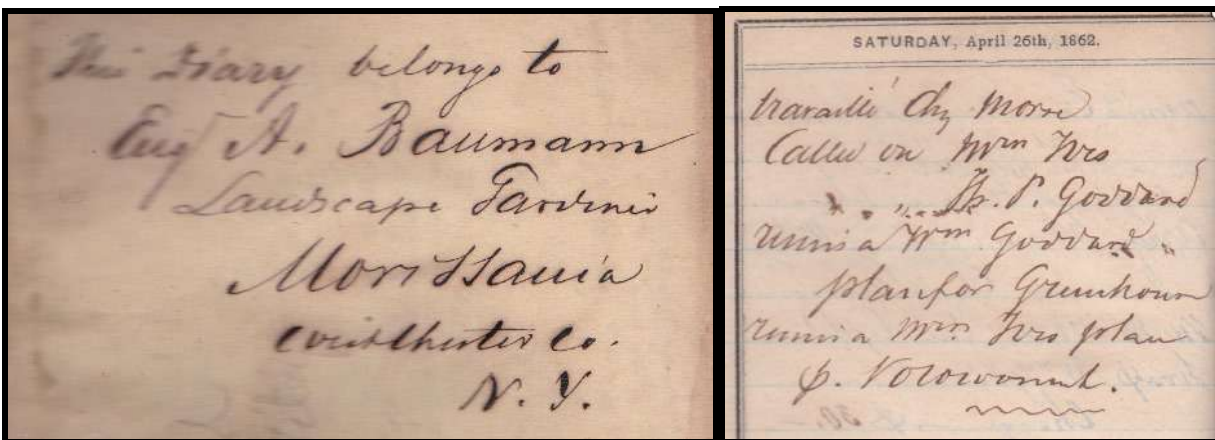 This Diary belongs to
Eug A. Baumann
Landscape Gardener
Morrissania
Westchester Co.
N. Y.
SATURDAY, April 26th, 1862.
travaillé chz Morse
Called on Mrm Ives
" " Th. P. Goddard
remis a Wm Goddard
plan for Greenhouse
remis a Mrm Ives plan
p.